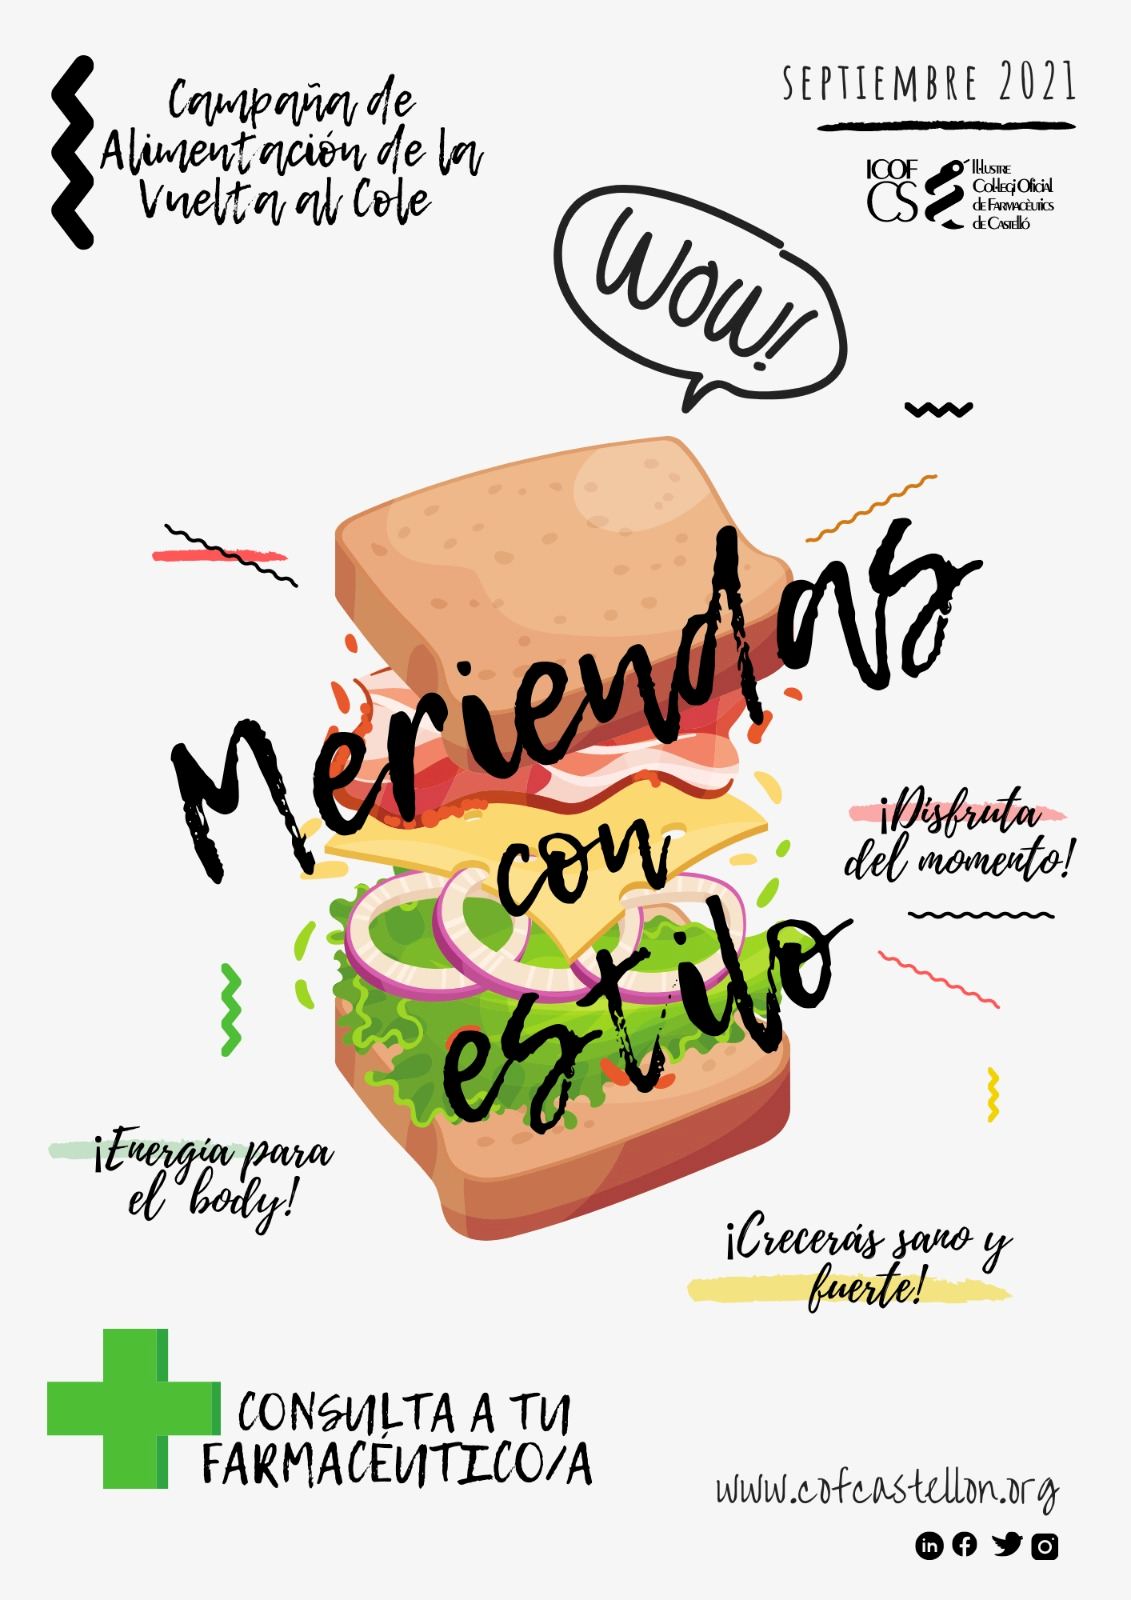 Campaña de
Alimentación de la
Vuelta al Cole
SEPTIEMBRE 2021
ICOF
CS
Il·lustre
Col·legi Oficial
de Farmacèutics
de Castelló
WOW!
Meriendas
con
estilo
¡Disfruta
del momento!
¡Energía para
el body!
¡Crecerás sano y
fuerte!
CONSULTA A TU
FARMACÉUTICO/A
www.cofcastellon.org